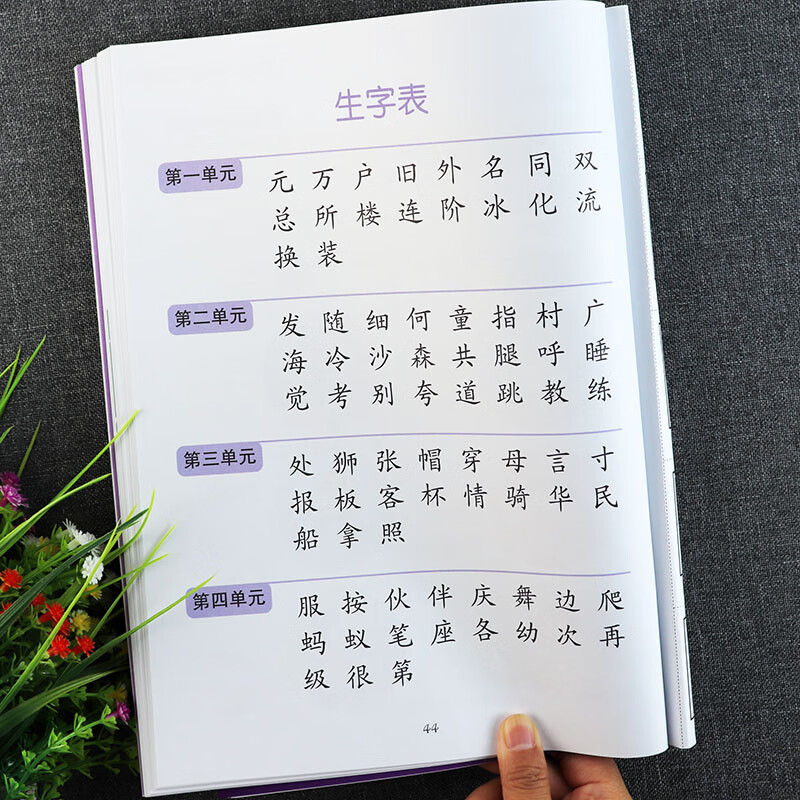 生字表
第一单元 元 万 户 旧 外 名 同 双
总 所 楼 连 阶 冰 化 流
换 装
第二单元 发 随 细 何 童 指 村 广
海 冷 沙 森 共 腿 呼 睡
觉 考 别 夸 道 跳 教 练
第三单元 处 狮 张 帽 穿 母 言 寸
报 板 客 杯 情 骑 华 民
船 拿 照
第四单元 服 按 伙 伴 庆 舞 边 爬
蚂 蚁 笔 座 各 幼 次 再
级 很 第
44